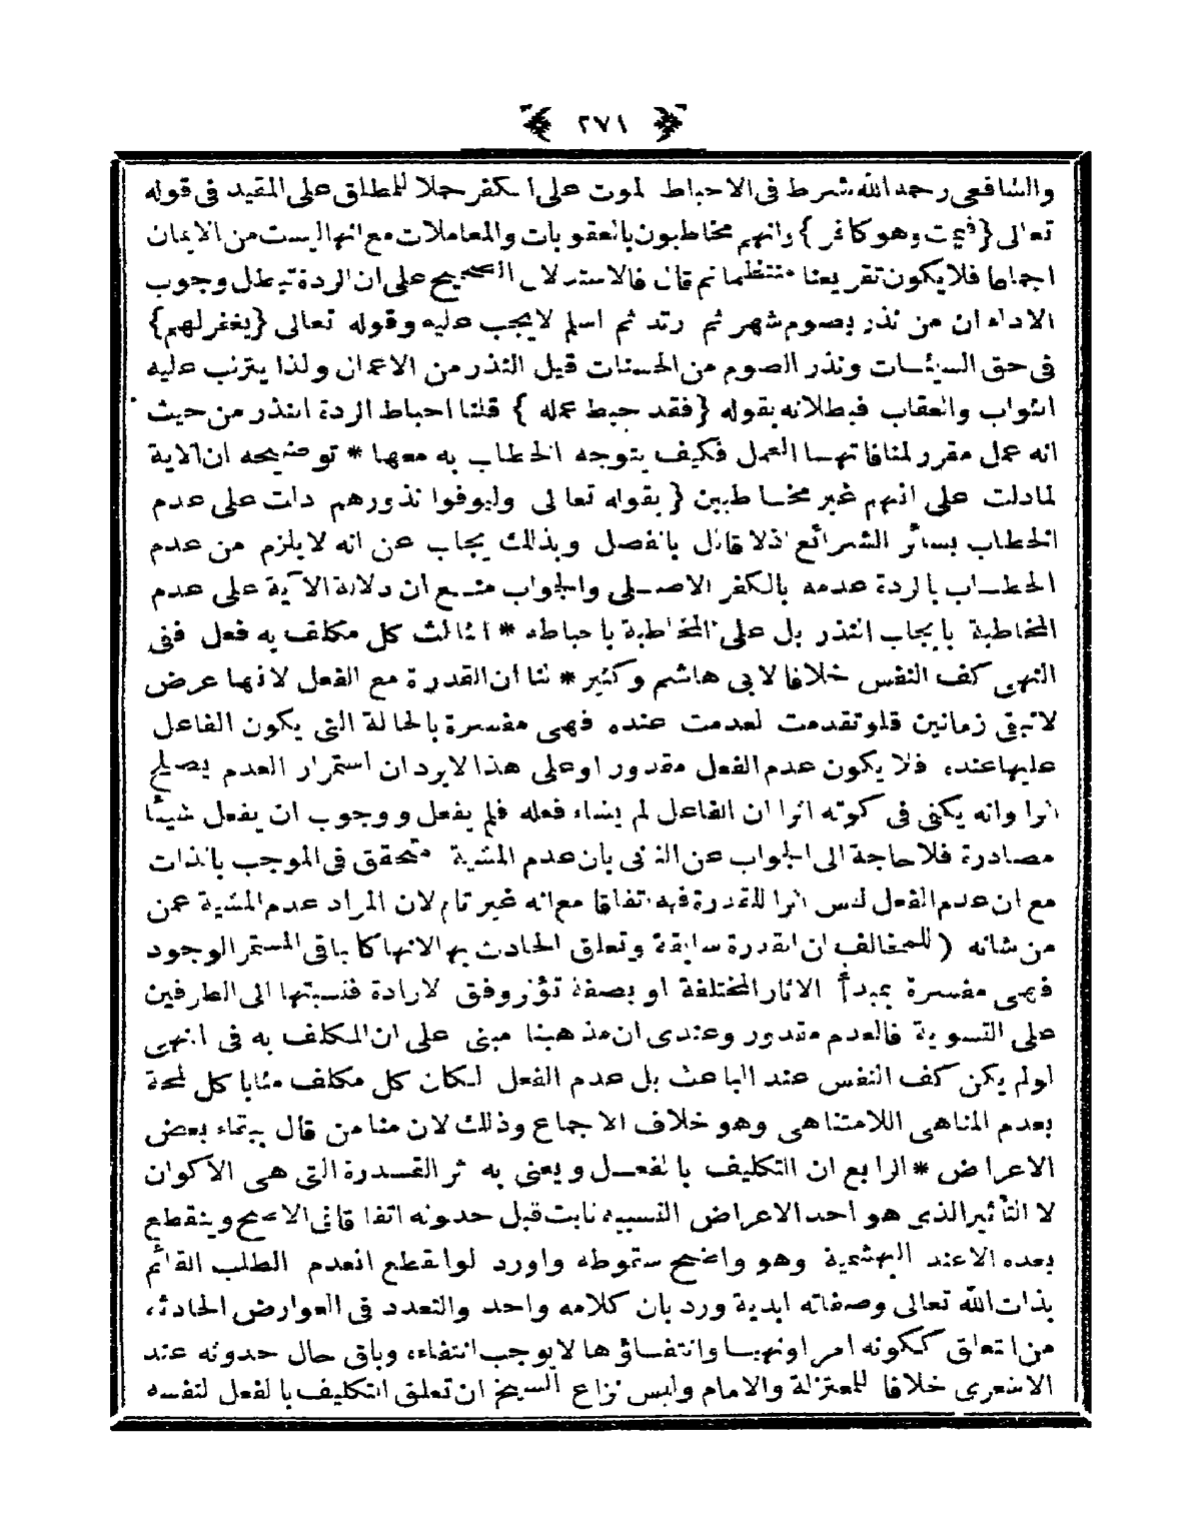 ٢٧١
والشافعى رحمه الله شرط فى الاحباط لموت على الكفر حملا للمطلق على المقيد فى قوله
تعالى {فيمت وهو كافر} وانهم مخاطبون بالعقوبات والمعاملات مع انها ليست من الايمان
اجماعا فلا يكون تفريعنا منتظما ثم قال فالاستدلال الصحيح على ان الردة تبطل وجوب
الاداء ان من نذر بصوم شهر ثم رتد ثم اسلم لا يجب عليه وقوله تعالى {يغفر لهم}
فى حق السيئات ونذر الصوم من الحسنات قيل النذر من الاعمال ولذا يترتب عليه
الثواب والعقاب فبطلانه بقوله {فقد حبط عمله} قلنا احباط الردة النذر من حيث
انه عمل مقرر لمنافاتهما العمل فكيف يتوجه الخطاب به معها * توضيحه ان الآية
لما دلت على انهم غير مخاطبين { بقوله تعالى وليوفوا نذورهم دلت على عدم
الخطاب بسائر الشرائع اذ لا قائل بالفصل وبذلك يجاب عن انه لا يلزم من عدم
الخطاب بالردة عدمه بالكفر الاصلى والجواب منع ان دلالة الآية على عدم
المخاطبة بايجاب النذر بل على المخاطبة باحباطه * الثالث كل مكلف به فعل ففى
النهى كف النفس خلافا لابى هاشم وكثير * لنا ان القدرة مع الفعل لانها عرض
لا تبقى زمانين فلو تقدمت لعدمت عنده فهى مفسرة بالحالة التى يكون الفاعل
عليها عنده فلا يكون عدم الفعل مقدورا وعلى هذا لا يرد ان استمرار العدم يصلح
اثرا وانه يكفى فى كونه اثرا ان الفاعل لم يشاء فعله فلم يفعل ووجوب ان يفعل شيئا
مصادرة فلا حاجة الى الجواب عن الثانى بان عدم المشية متحقق فى الموجب بالذات
مع ان عدم الفعل ليس اثرا للقدرة فيه اتفاقا مع انه غير تام لان المراد عدم المشية عمن
من شانه (للمخالف ان القدرة سابقة وتعلق الحادث بها الانها كا باقى المستمر الوجود
فهى مفسرة بمبدأ الاثار المختلفة او بصفة تؤثر وفق لارادة فنسبتها الى الطرفين
على التسوية فالعدم مقدور وعندى ان مذهبنا مبنى على ان المكلف به فى النهى
لو لم يكن كف النفس عند الباعث بل عدم الفعل لكان كل مكلف مثابا كل لمحة
بعدم المناهى اللامتناهى وهو خلاف الاجماع وذلك لان منا من قال ببقاء بعض
الاعراض * الرابع ان التكليف بالفعل ويعنى به ثر القدرة التى هى الاكوان
لا التأثير الذى هو احد الاعراض النسبيه ثابت قبل حدوثه اتفاقا فى الاصح وينقطع
بعده الا عند البهشمية وهو واضح سقوطه واورد لو انقطع انعدم الطلب القائم
بذات الله تعالى وصفاته ابدية ورد بان كلامه واحد والتعدد فى العوارض الحادثة
من التعلق ككونه امرا ونهيا وانتفاؤها لا يوجب انتفاءه وباق حال حدوثه عند
الاشعرى خلافا للمعتزلة والامام وليس نزاع الشيخ ان تعلق التكليف بالفعل لنفسه